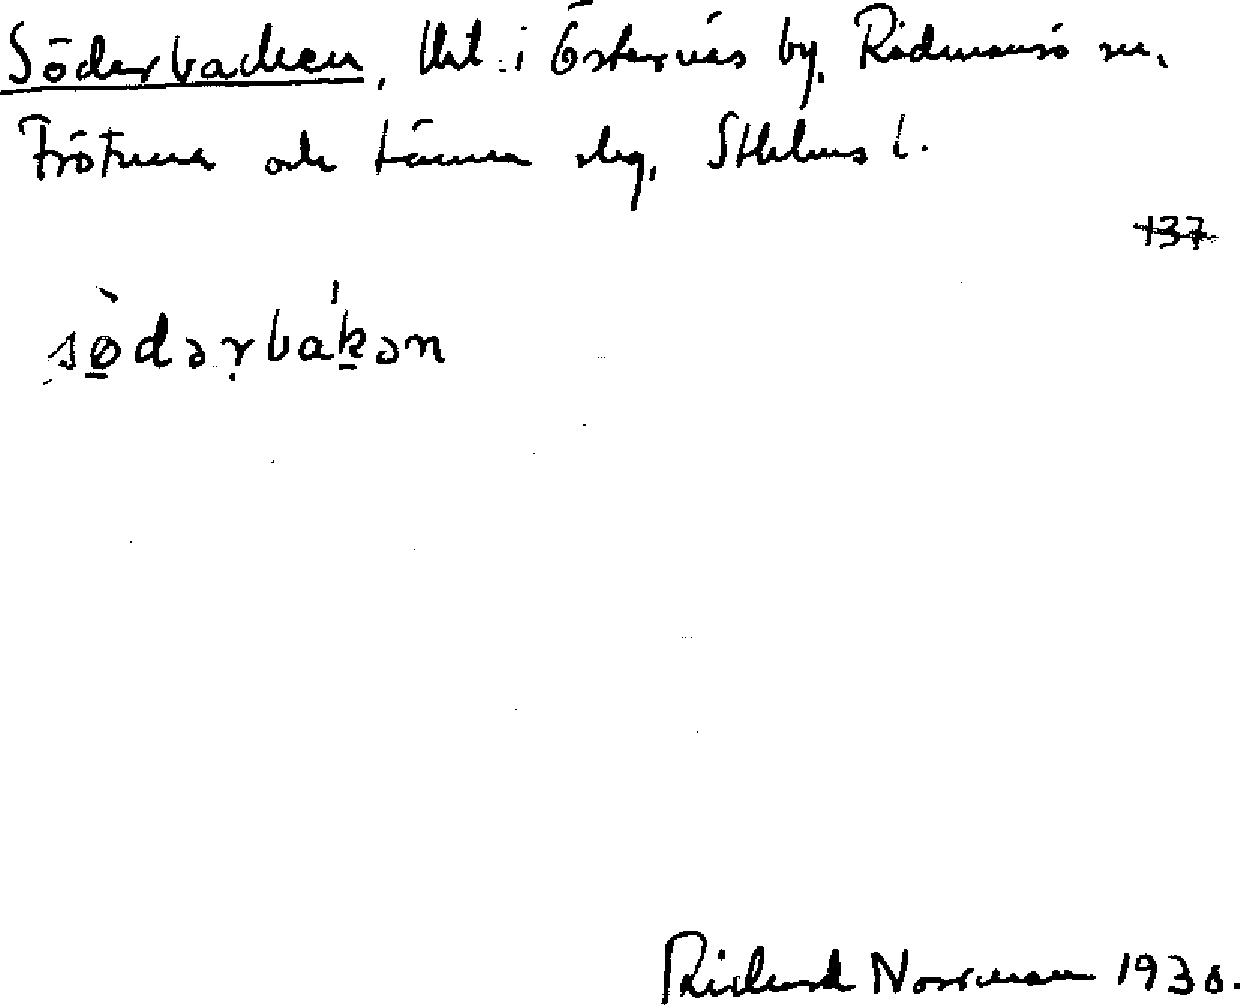 Söderbacken, lht. i Östernäs by, Rådmansö sn.
Frötuna och Länna slag, Sthlms l.
+37
sø̀dərba̍kən
Richard Norrman 1930.